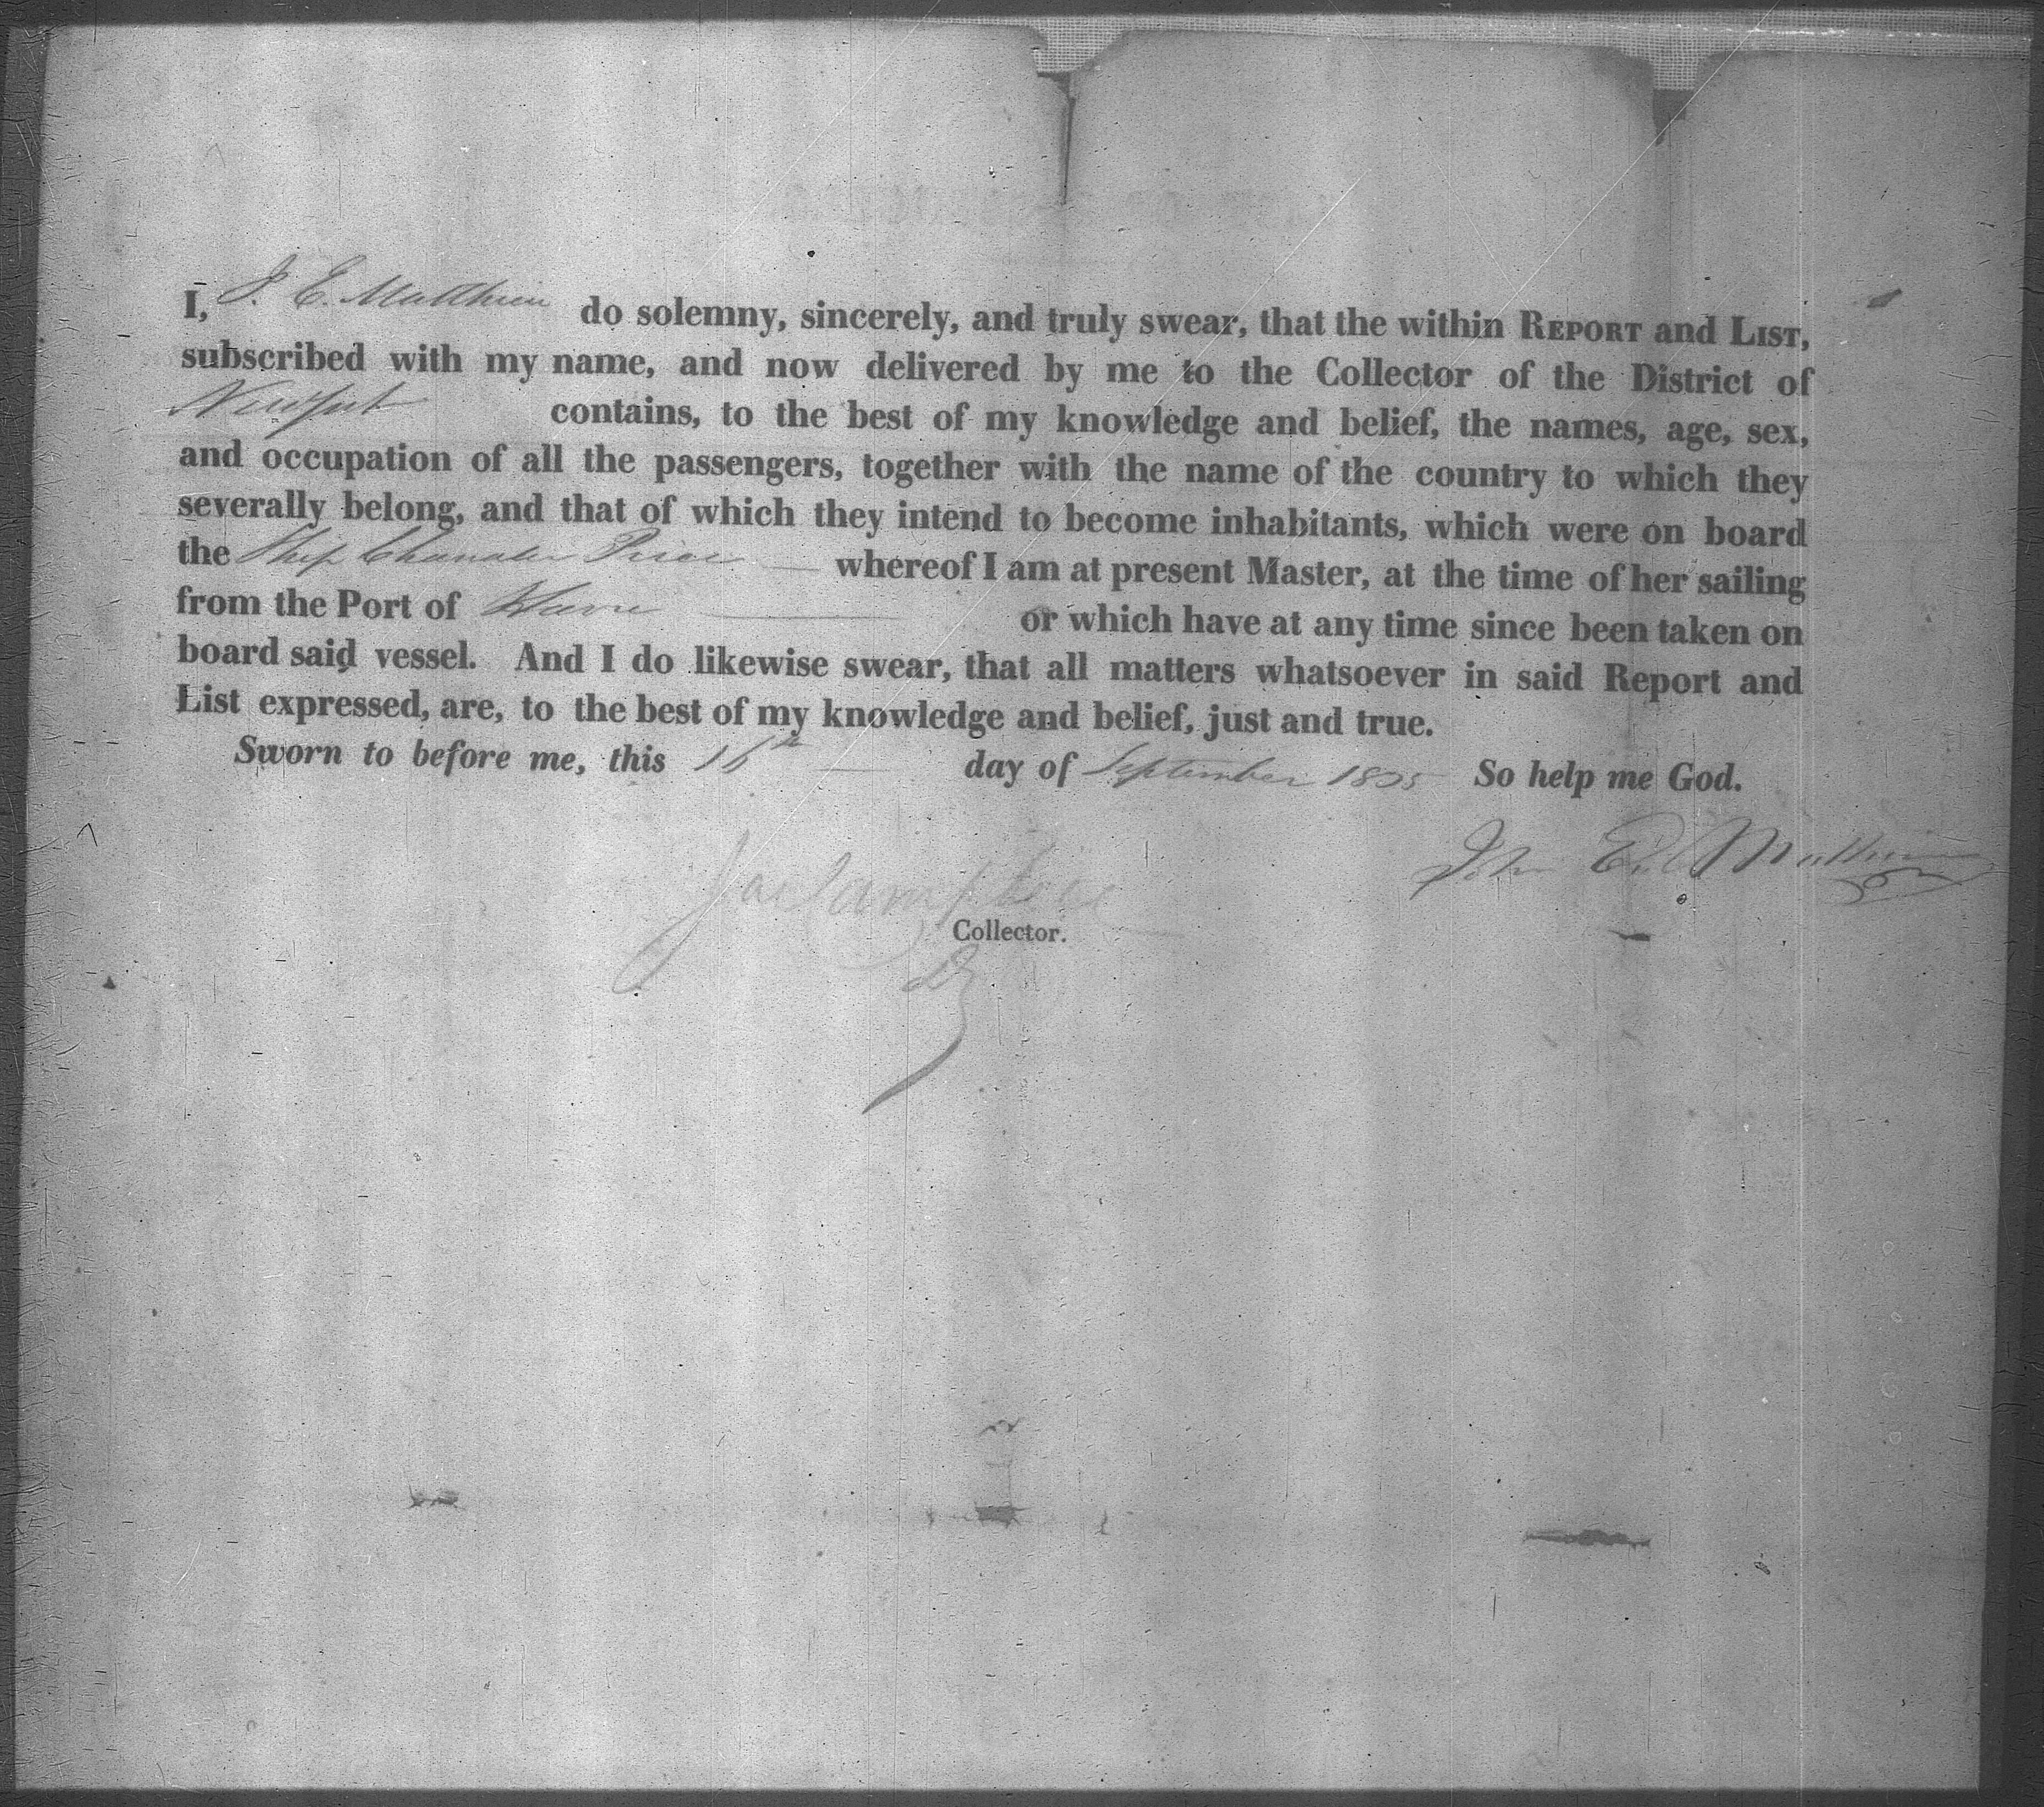 I, J. E. Matthieu do solemny, sincerely, and truly swear, that the within REPORT and LIST,
subscribed with my name, and now delivered by me to the Collector of the District of
Newport contains, to the best of my knowledge and belief, the names, age, sex,
and occupation of all the passengers, together with the name of the country to which they
severally belong, and that of which they intend to become inhabitants, which were on board
the Ship Chandler Price whereof I am at present Master, at the time of her sailing
from the Port of Havre or which have at any time since been taken on
board said vessel. And I do likewise swear, that all matters whatsoever in said Report and
List expressed, are, to the best of my knowledge and belief, just and true.
Sworn to before me, this 16th day of September 1835 So help me God.
John E. Matthieu
Collector.